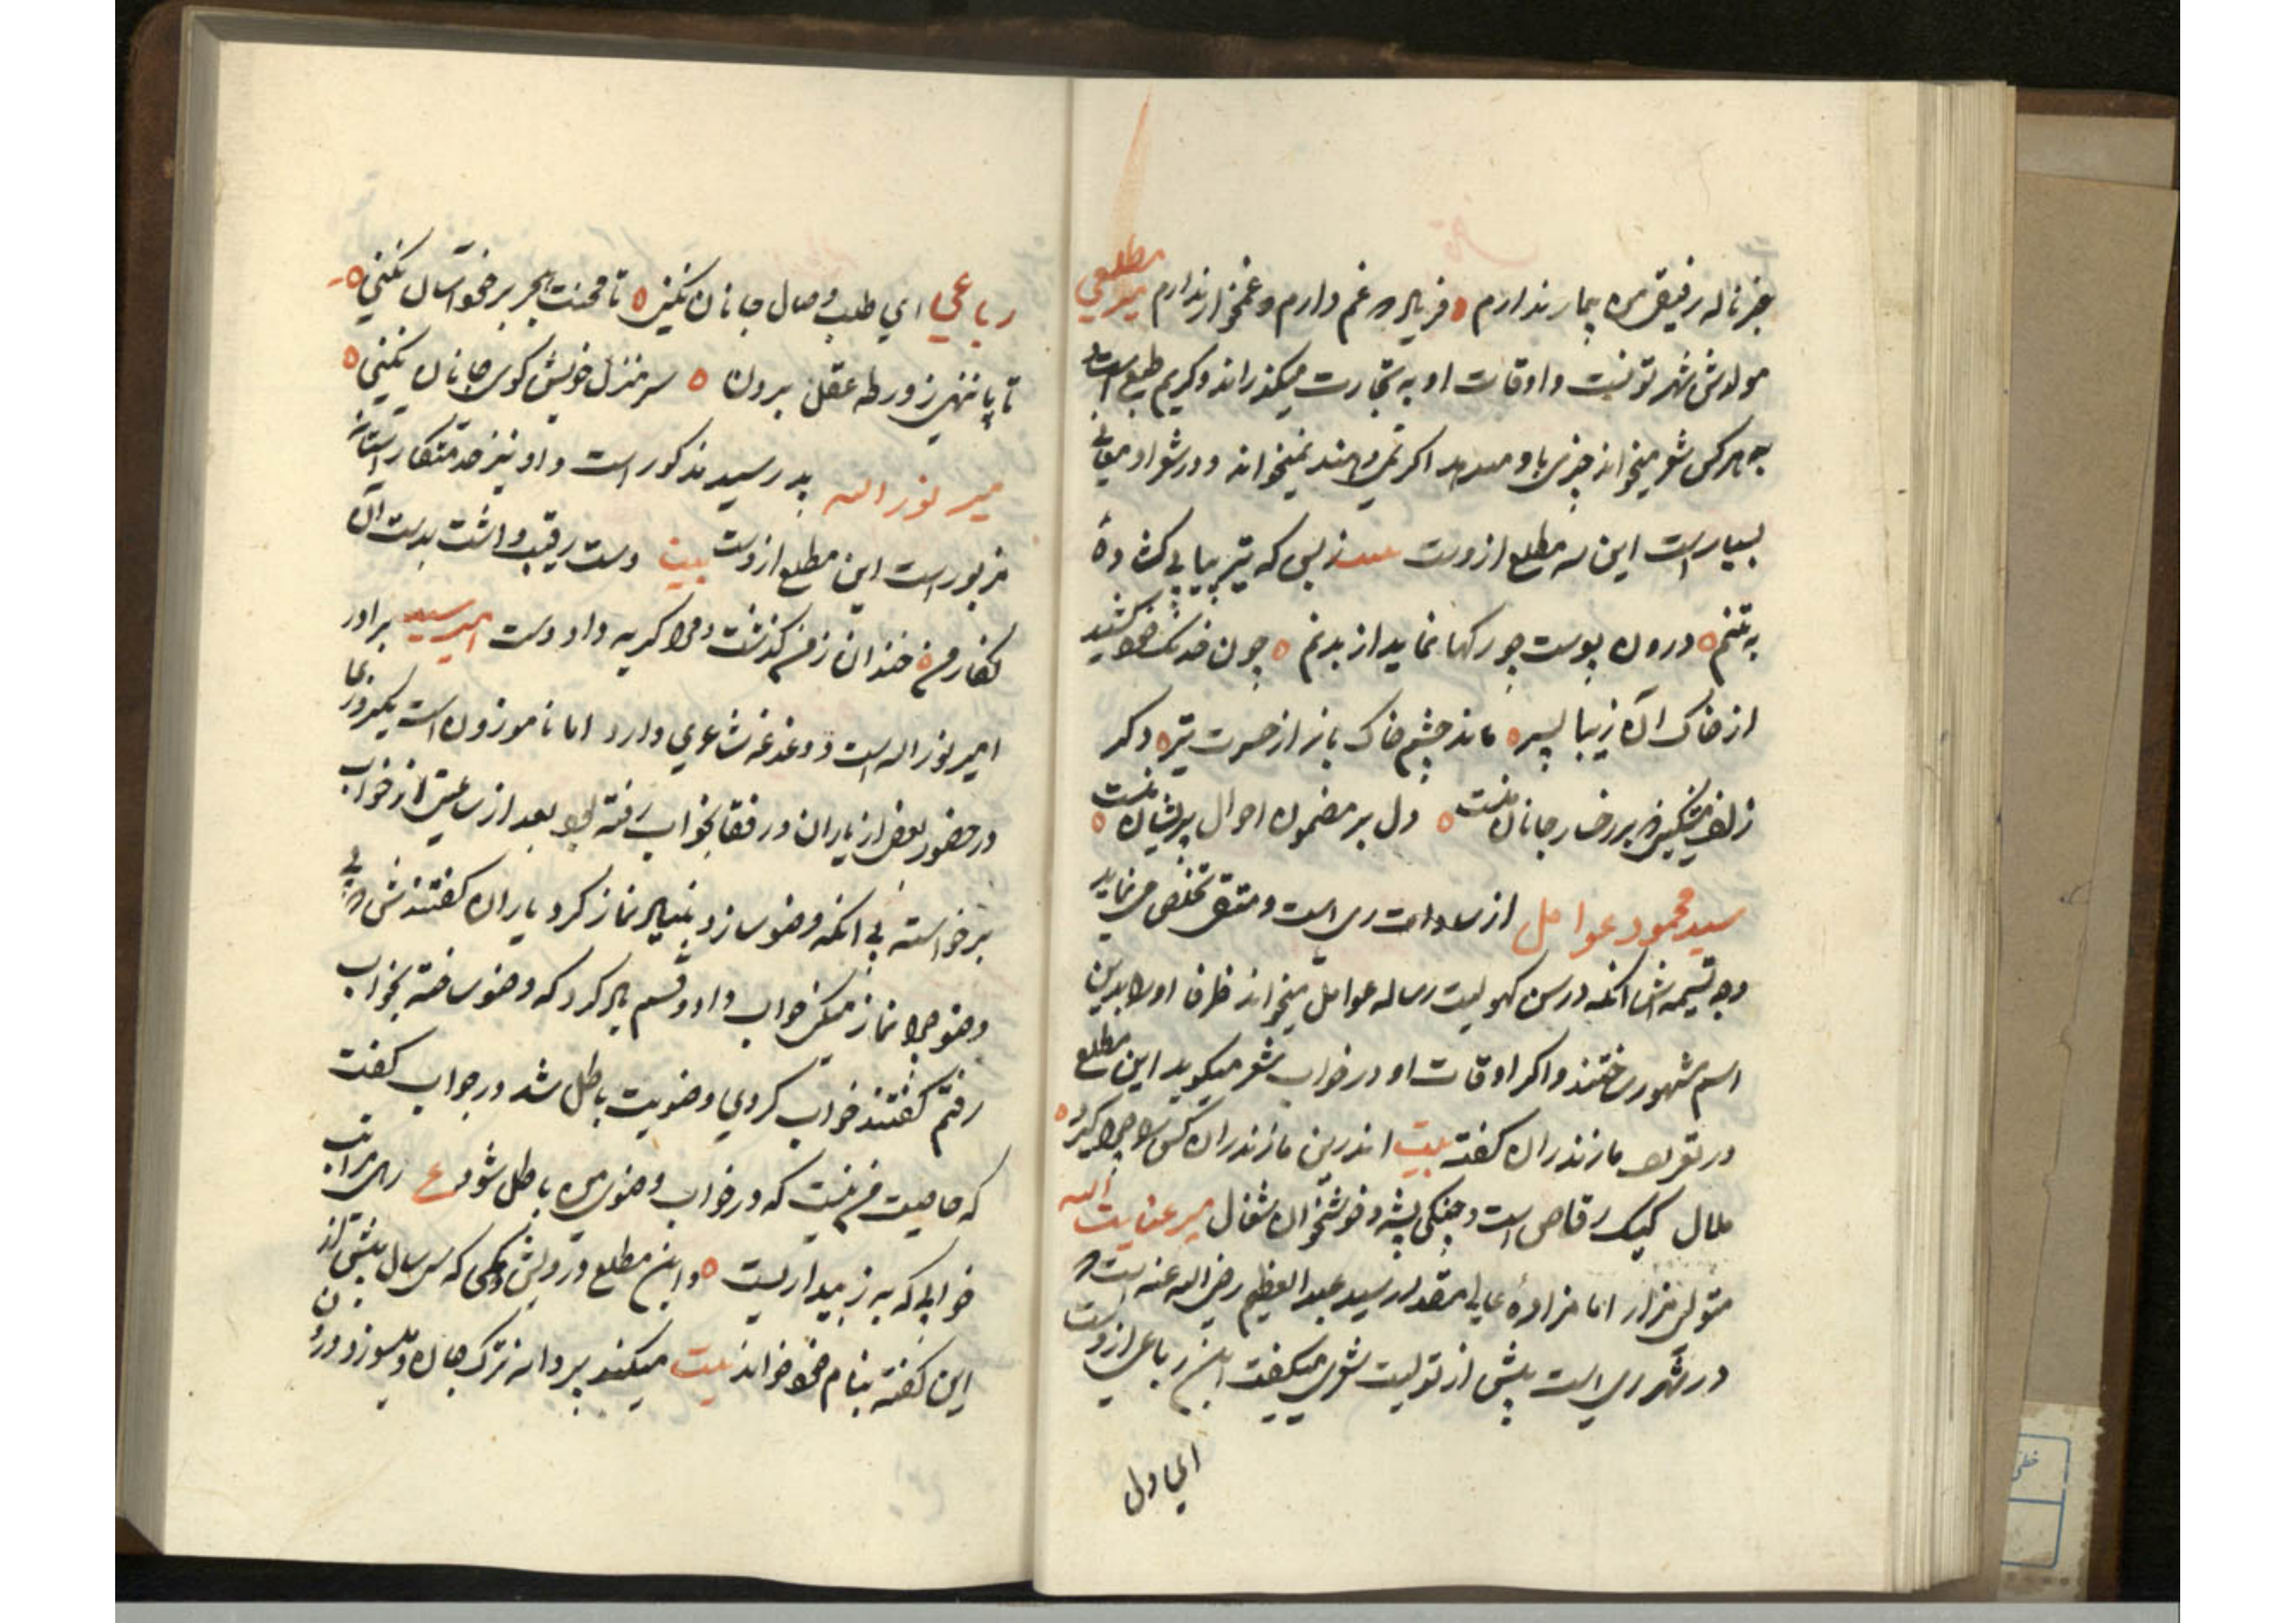 جز ناله رفیقی من بیمار ندارم فریاد که غم دارم و غمخوار ندارم مطلعی
مولدش شهر تونست و اوقات او به تجارت میکذراند و کریم طبع است
هر کس شعر میخواند چیزی باو میدهد اکر نمی دهند نمیخواند و در شعر او معانی
بسیار است این سه مطلع ازوست زبس که تیر پیاپی کشاده
به تنم درون پوست چو رکها نماید از بدنم چون خدنک خود کشید
از خاک آن زیبا پسر ماند چشم خاک باز از حسرت تیر دکر
زلف مشکین بر رخسار جانان منست دل بر مضمون احوال پریشان منست
سید محمود عوامل از سادات ری است و متقی تخلص می نماید
وجه تسمیه اش آنکه در سن کهولیت رساله عوامل میخواند ظرفا او را بدین
اسم مشهور ساختند و اکر اوقات او در خواب شعر میکوید این مطلع
در تعریف مازندران کفته بیت اندرین مازندران کس را چرا کیرد
ملال کیک رقاص است و چنکی پشه و خوشخوان شغال میر عنایت الله
متولی مزار امامزاده عالی مقدار سید عبد العظیم رضی الله عنه است که
در شهر ری است پیش از تولیت شعر میکفت این رباعی ازوست
ای دل
رباعی ای طلب وصال جانان نکنی تا محنت هجر بر خود آسان نکنی
تا پا ننهی ز ورطه عقل برون سر منزل خویش کوی جانان نکنی
میر نور الله پدر سید مذکور است و او نیز خدمتکار آستانه
مزبور است این مطلع ازوست بیت دست رقیب داشت بدست آن
نکار من خندان ز من کذشت و مرا کریه داد دست امیر سید برادر
امیر نور اله است و دغدغه شاعری دارد اما ناموزون است یکروز
در حضور بعضی از یاران و رفقا بخواب رفته بود بعد از ساعتی از خواب
برخواسته بی آنکه وضو سازد بنیاد نماز کرد یاران کفتندش که بی
وضو چرا نماز میکنی جواب داد و قسم یاد کرد که وضو ساخته بخواب
رفتم کفتند خواب کردی وضویت باطل شد در جواب کفت
که خاصیت من نیست که در خواب وضوی من باطل شود ع زهی مراتب
خوابی که به ز بیداریست و این مطلع درویش دهکی که سی سال پیش از
این کفته بنام خود خواند بیت میکند پروانه ترک جان و میسوزد